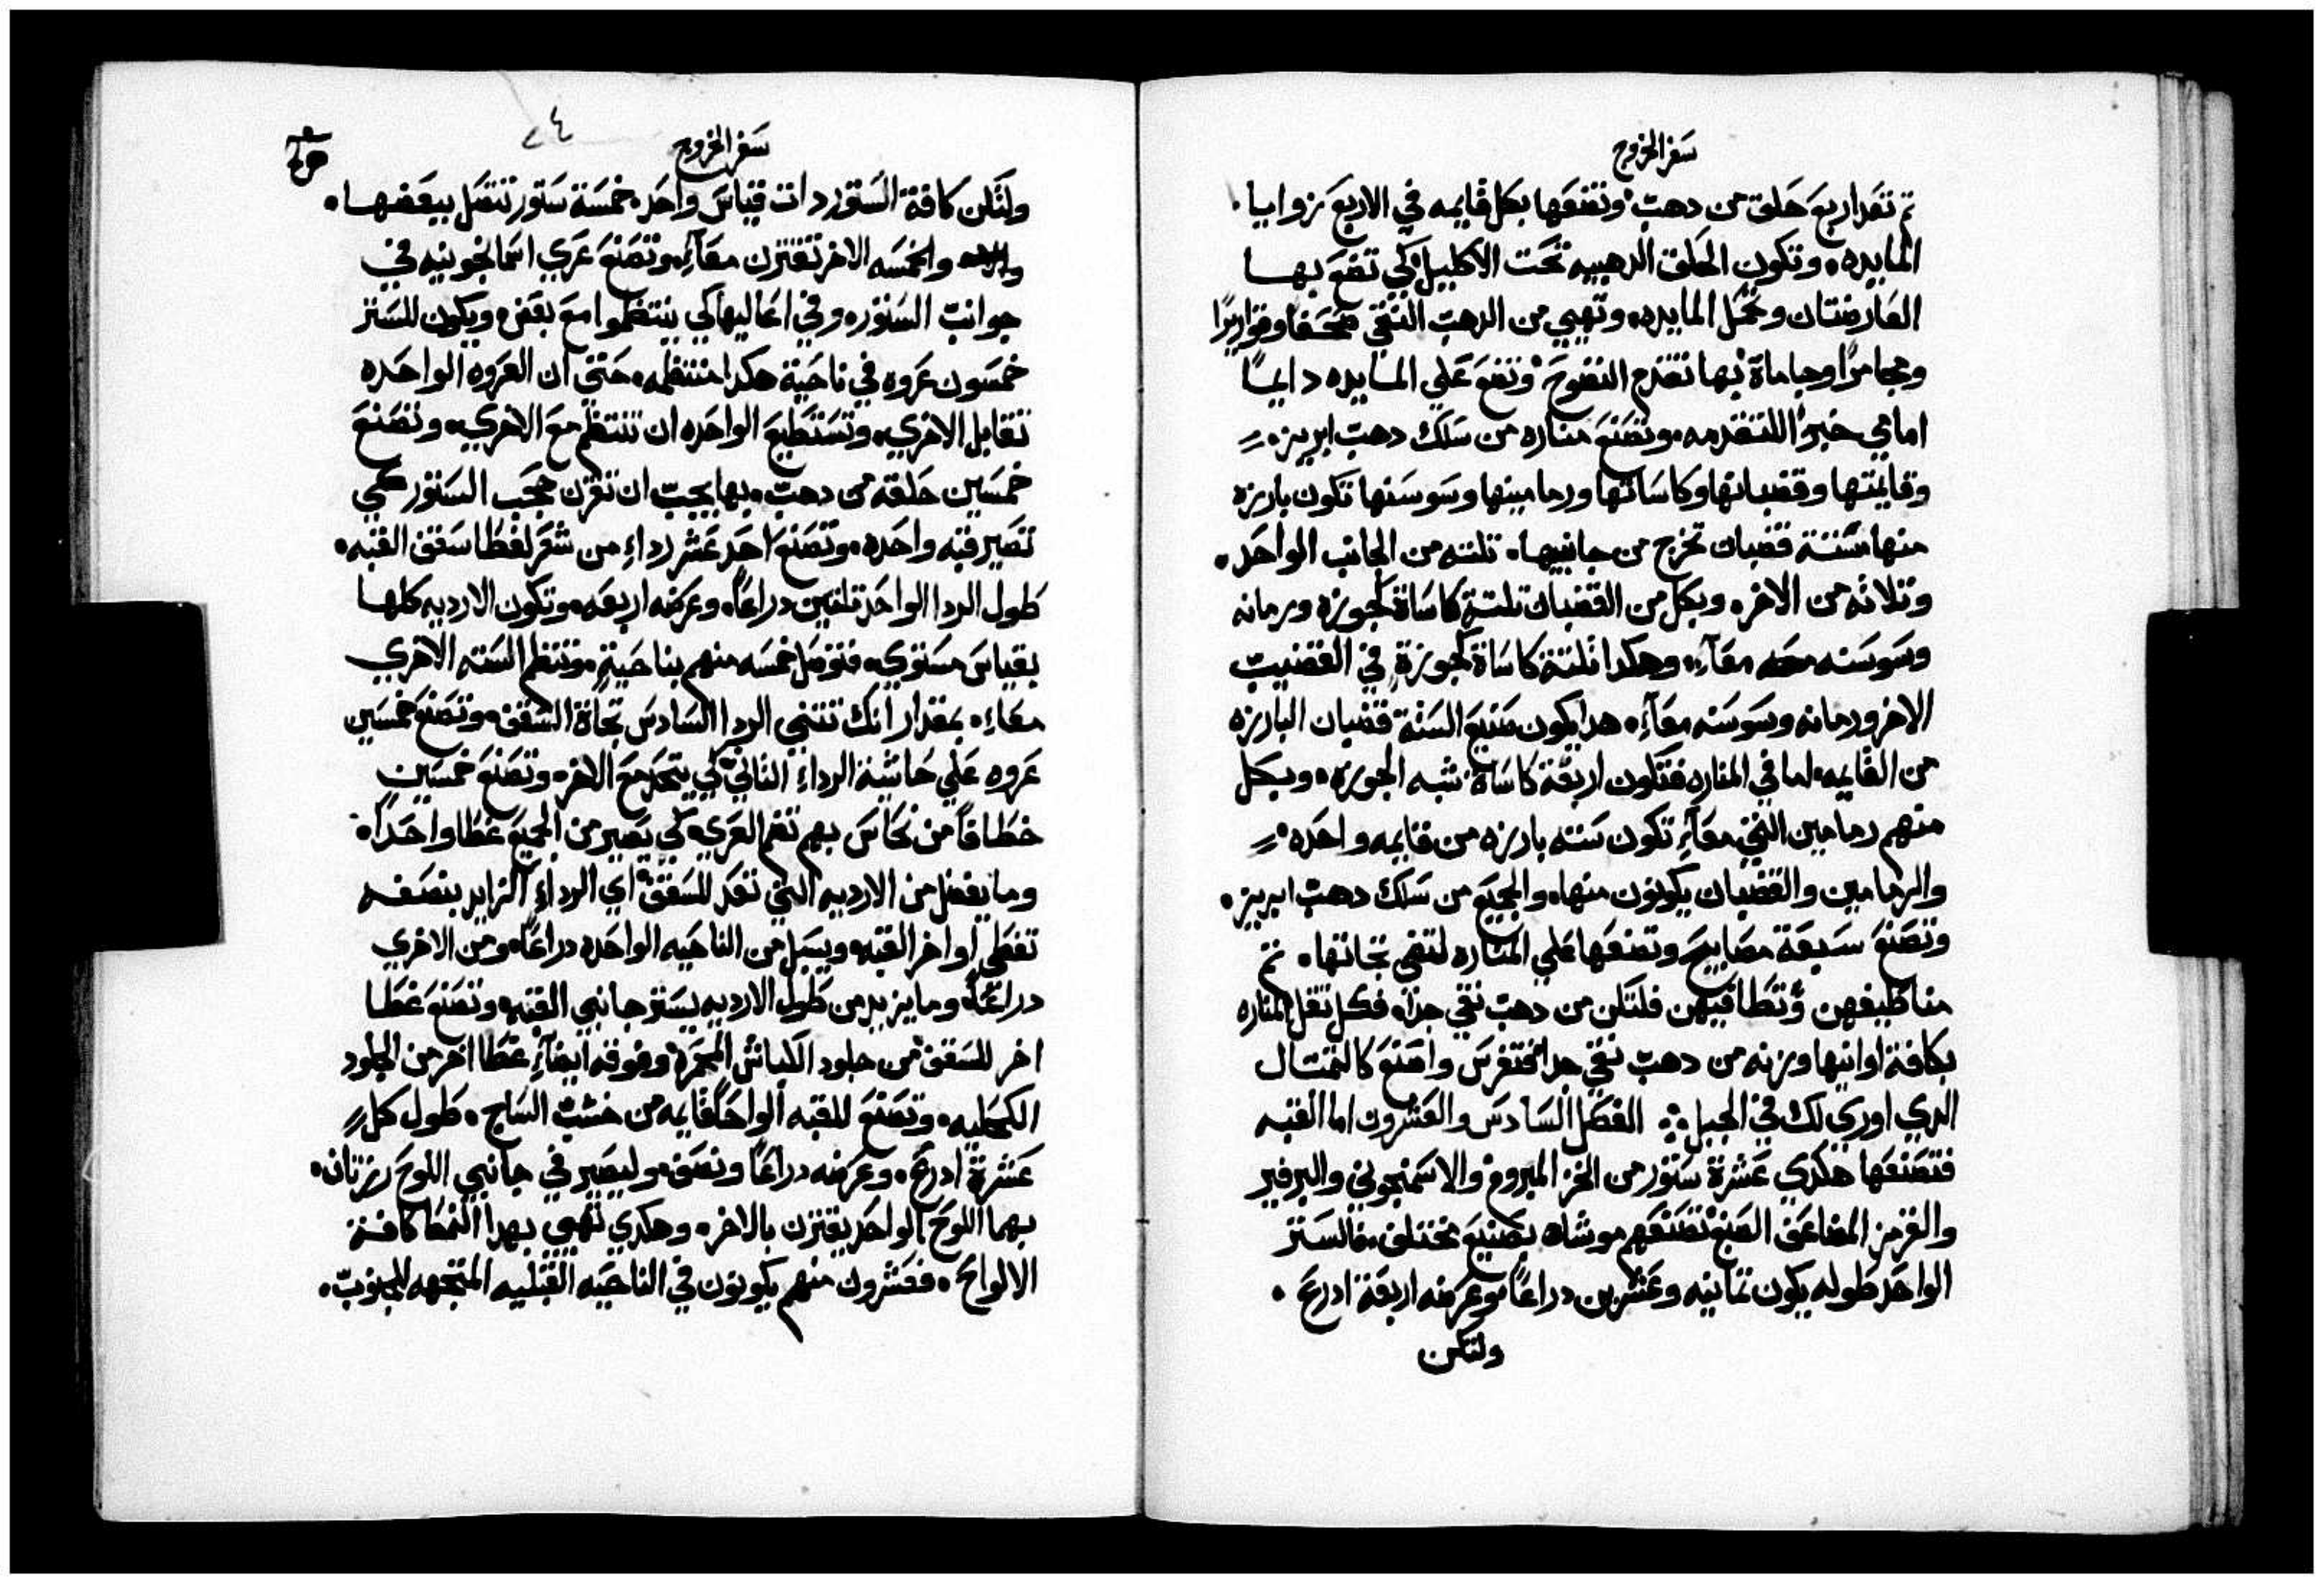 سفر الخروج
تم تعد اربع حلق من دهب وتضعها بكل قايمه في الاربع زوايا.
المايده. وتكون الحلق الدهبيه تحت الاكليل كي تضع بها
العارضتان وتحمل المايده. وتهيي من الدهب النقي صحفا وقواريرًا
ومجامرًا وجاماة بها تقدم النضوح وتضع علي المايده دايمًا
امامي خبز اللتقدمه. وتصنع مناره من سلك دهب ابريز.
وقايمتها وقضبانها وكاساتها ورمامينها وسوسنها تكون بارزه
منها ستة قضبان تخرج من جانبيها. تلته من الجانب الواحد.
وتلاته من الاخر. وبكل من القضبان تلتة كاساة كجوزه ورمانه
وسوسنه معه معآء. وهكدا تلتة كاساة كجوزة في القضيب
الاخر ورمانه وسوسنه معآء. هدا يكون صنيع الستة قضبان البارزه
من القايمه. اما في المناره فتكون اربعة كاساة شبه الجوزه. وبكل
منهم رمامين التي معآء تكون سته بارزه من قايمه واحده.
والرمامين والقضبان يكونون منها. والجميع من سلك دهب ابريز.
وتصنع سبعة مصابيح وتضعها علي المناره لتضي تجاتها. تم
مناظيفهن وتطافيهن فلتكن من دهب نقي جدًا. فكل تقل المناره
بكافة اوانيها وزنه من دهب نقي جدا فتفرس واصنع كالتمتال
الدي اوري لك في الجبل. الفصل السادس والعشرون اما القبه
فتصنعها هكدي عشرة ستور من الخز المبروم والاسمنجوني والبرفير
والقرمز المضاعف الصبغ تصنعهم موشاه بصنيع مختلف. فالستر
الواحد طوله يكون تمانيه وعشرين دراعًا وعرضه اربعة ادرع.
ولتكن
سفر الخروج
٤٢
ولتكن كافة الستور دات قياس واحد. خمسة ستور تتصل ببعضها.
والخمسه الاخر تقترن معآء. وتصنع عري اسمانجونيه في
جوانب الستور. وفي اعاليها كي ينتظموا مع بعض. ويكون للستر
خمسون عروه في ناحية هكدا منتظمه. حتي ان العروه الواحده
تقابل الاخري. وتستطيع الواحده ان تنتظم مع الاخري. وتصنع
خمسين حلقه من دهب. بها يجب ان تقرن حجب الستور كي
تصير قبه واحده. وتصنع احد عشر رداء من شعر لغطا سقف القبه.
طول الردا الواحد تلتين دراعًا. وعرضه اربعه. وتكون الارديه كلها
بقياس مستوي. فتوصل خمسه منهم بناحية. وتنظم السته الاخري
معاء. بمقدار انك تتني الردا السادس تجاة السقف. وتصنع خمسين
عروه علي حاشية الرداء التاني كي يتحد مع الاخر. وتصنع خمسين
خطافًا من نحاس بهم تضم العري. كي يصير من الجميع غطا واحدًا.
وما يفضل من الارديه التي تعد للسقف اي الرداء الزايد بنصفه
تغطي اواخر القبه. ويسبل من الناحيه الواحده دراعًا. ومن الاخري
دراعًا. وما يزيد من طول الارديه يستر جانبي القبه. وتصنع غطا
اخر للسقف من جلود الكباش المحمره. وفوقه ايضآء غطا اخر من الجلود
الكحليه. وتصنع للقبه الواحًا قايمه من خشب الساج. طول كل
عشرة ادرع. وعرضه دراعًا ونصف. وليصير في جانبي اللوح رزتان.
بهما اللوح الواحد يقترن بالاخر. وهكدي تهيي بهدا النمط كافة
الالواح. فعشرون منهم يكونون في الناحيه القبليه المتجهه للجنوب.